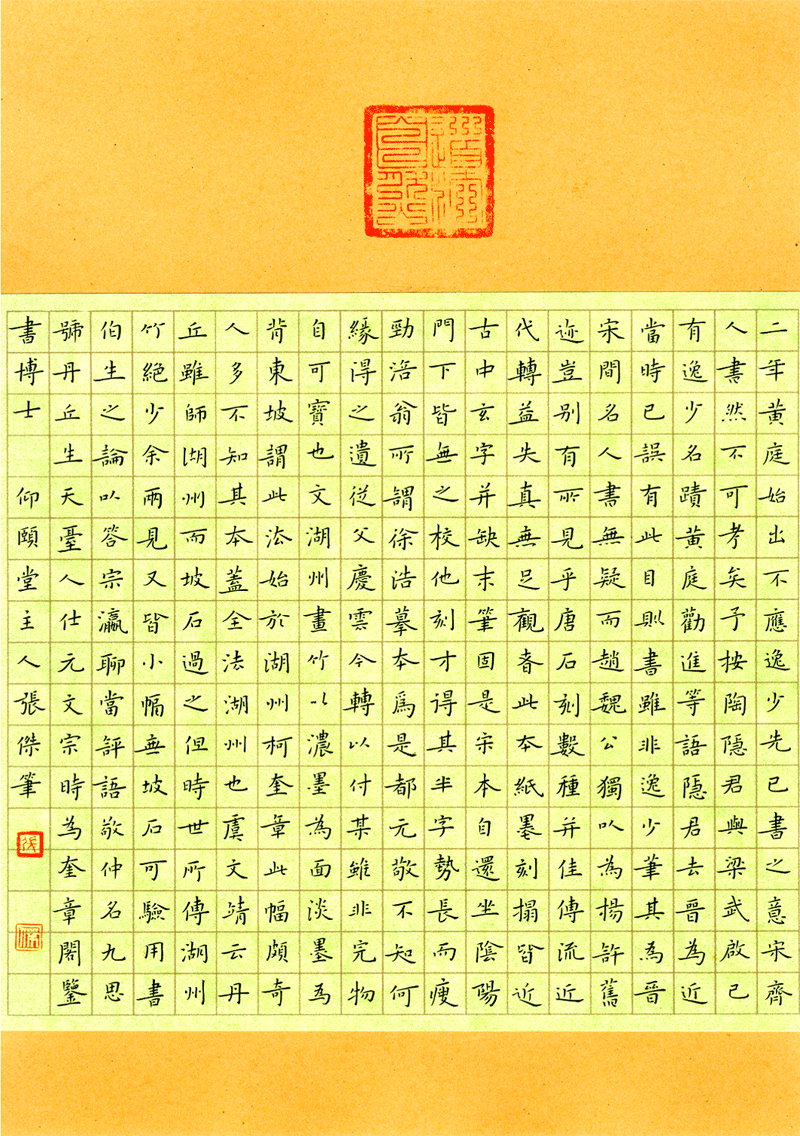 二年黄庭始出不應逸少先已書之意宋齊
人書然不可考矣予按陶隱君與梁武啟已
有逸少名蹟黄庭勸進等語隱君去晉為近
當時已誤有此目則書雖非逸少筆其為晉
宋間名人書無疑而趙魏公獨以為楊許舊
迹豈别有所見乎唐石刻數種并佳傳流近
代轉益失真無足觀者此本紙墨刻搨皆近
古中玄字并缺末筆固是宋本自還坐陰陽
門下皆無之校他刻才得其半字勢長而瘦
勁涪翁所謂徐浩摹本為是都元敬不知何
緣得之遺從父慶雲今轉以付某雖非完物
自可寶也文湖州畫竹以濃墨為面淡墨為
背東坡謂此法始於湖州柯奎章此幅頗奇
人多不知其本蓋全法湖州也虞文靖云丹
丘雖師湖州而坡石過之但時世所傳湖州
竹絶少余兩見又皆小幅無坡石可驗用書
伯生之論以答宗瀛聊當評語敬仲名九思
號丹丘生天臺人仕元文宗時為奎章閣鑒
書博士 仰頤堂主人張傑筆